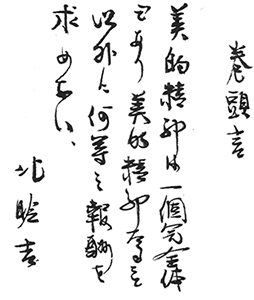 卷頭言
美的精神は一個完全体
であり美的精神
以外に何等之報酬を
求めない、
北昤吉